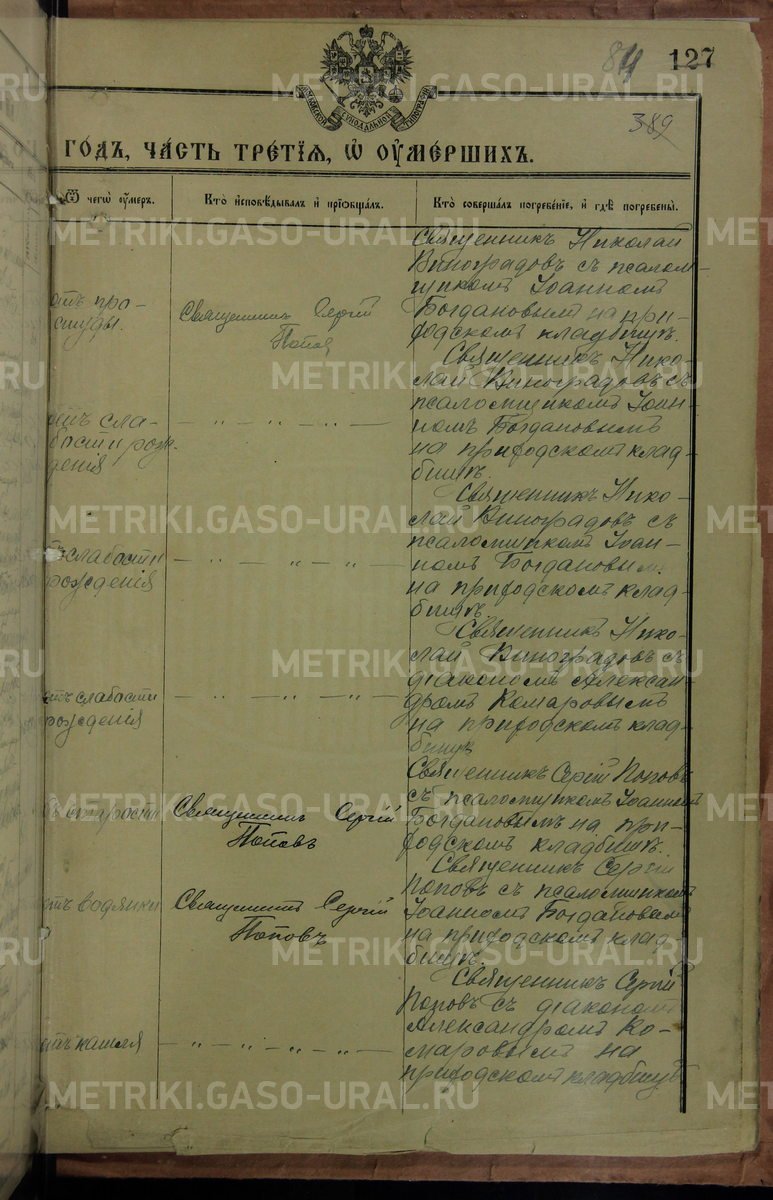 84 127
389
МОСКОВСКОЙ СѴНОДАЛЬНОЙ ТИПОГРАФІИ
ГОДЪ, ЧАСТЬ ТРЕТІЯ, Ѡ ОУМЕРШИХЪ.
Ѿ чегѡ оумеръ.
Кто исповѣдывалъ и пріобщалъ.
Кто совершалъ погребеніе, и гдѣ погребены.
отъ про-
студы.
Священникъ Сергій
Поповъ
Священникъ Николай
Виноградовъ съ псалом-
щикомъ Іоанномъ
Богдановымъ на при-
ходскомъ кладбищѣ.
отъ сла-
бости рож-
денія
— „ — „ — „ —
Священникъ Нико-
лай Виноградовъ съ
псаломщикомъ Іоан-
номъ Богдановымъ
на приходскомъ клад-
бищѣ.
слабости
рожденія
— „ — „ — „ —
Священникъ Нико-
лай Виноградовъ съ
псаломщикомъ Іоан-
номъ Богдановым.
на приходскомъ клад-
бищѣ.
отъ слабости
рожденія
— „ — „ — „ —
Священникъ Нико-
лай Виноградовъ съ
діакономъ Алексан-
дромъ Комаровымъ
на приходскомъ клад-
бищѣ
старости
Священникъ Сергій
Поповъ
Священникъ Сергій Поповъ
съ псаломщикомъ Іоанномъ
Богдановымъ на при-
ходскомъ кладбищѣ.
отъ водянки
Священникъ Сергій
Поповъ
Священникъ Сергій
Поповъ съ псаломщикомъ
Іоанномъ Богдановымъ
на приходскомъ клад-
бищѣ.
отъ кашля
— „ — „ — „ — „ —
Священникъ Сергій
Поповъ съ діакономъ
Александромъ Ко-
маровымъ на
приходскомъ кладбищѣ
METRIKI.GASO-URAL.RU